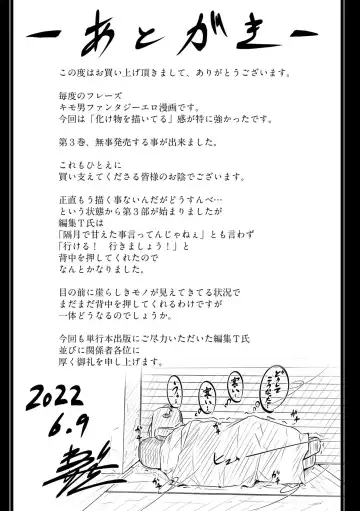 ーあとがきー
この度はお買い上げ頂きまして、ありがとうございます。
毎度のフレーズ
キモ男ファンタジーエロ漫画です。
今回は「化け物を描いてる」感が特に強かったです。
第３巻、無事発売する事が出来ました。
これもひとえに
買い支えてくださる皆様のお陰でございます。
正直もう描く事ないんだがどうすんべ…
という状態から第３部が始まりましたが
編集Ｔ氏は
「隔月で甘えた事言ってんじゃねぇ」とも言わず
「行ける！　行きましょう！」と
背中を押してくれたので
なんとかなりました。
目の前に崖らしきモノが見えてきてる状況で
まだまだ背中を押してくれるわけですが
一体どうなるのでしょうか。
今回も単行本出版にご尽力いただいた編集Ｔ氏
並びに関係者各位に
厚く御礼を申し上げます。
どうして
こうなった…
寒い…
寒い…
ヒュー
2022
6.9